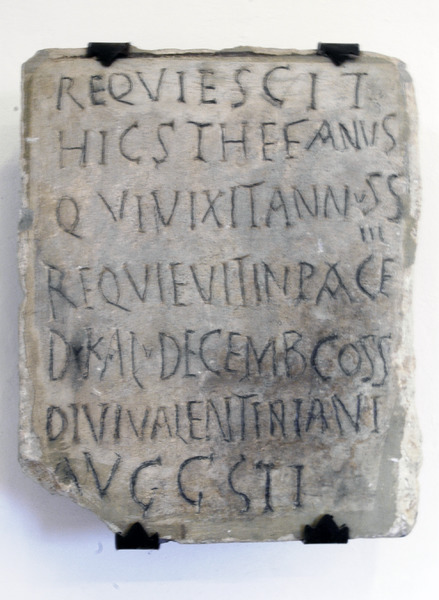 REQVIESCIT
HICSTHEFANVS
QVIVIXITANNVSS
III
REQVIEVITINPACE
D·KAL·DECEMBCOSS
DIVIVALENTINIANI
AVGGSTI